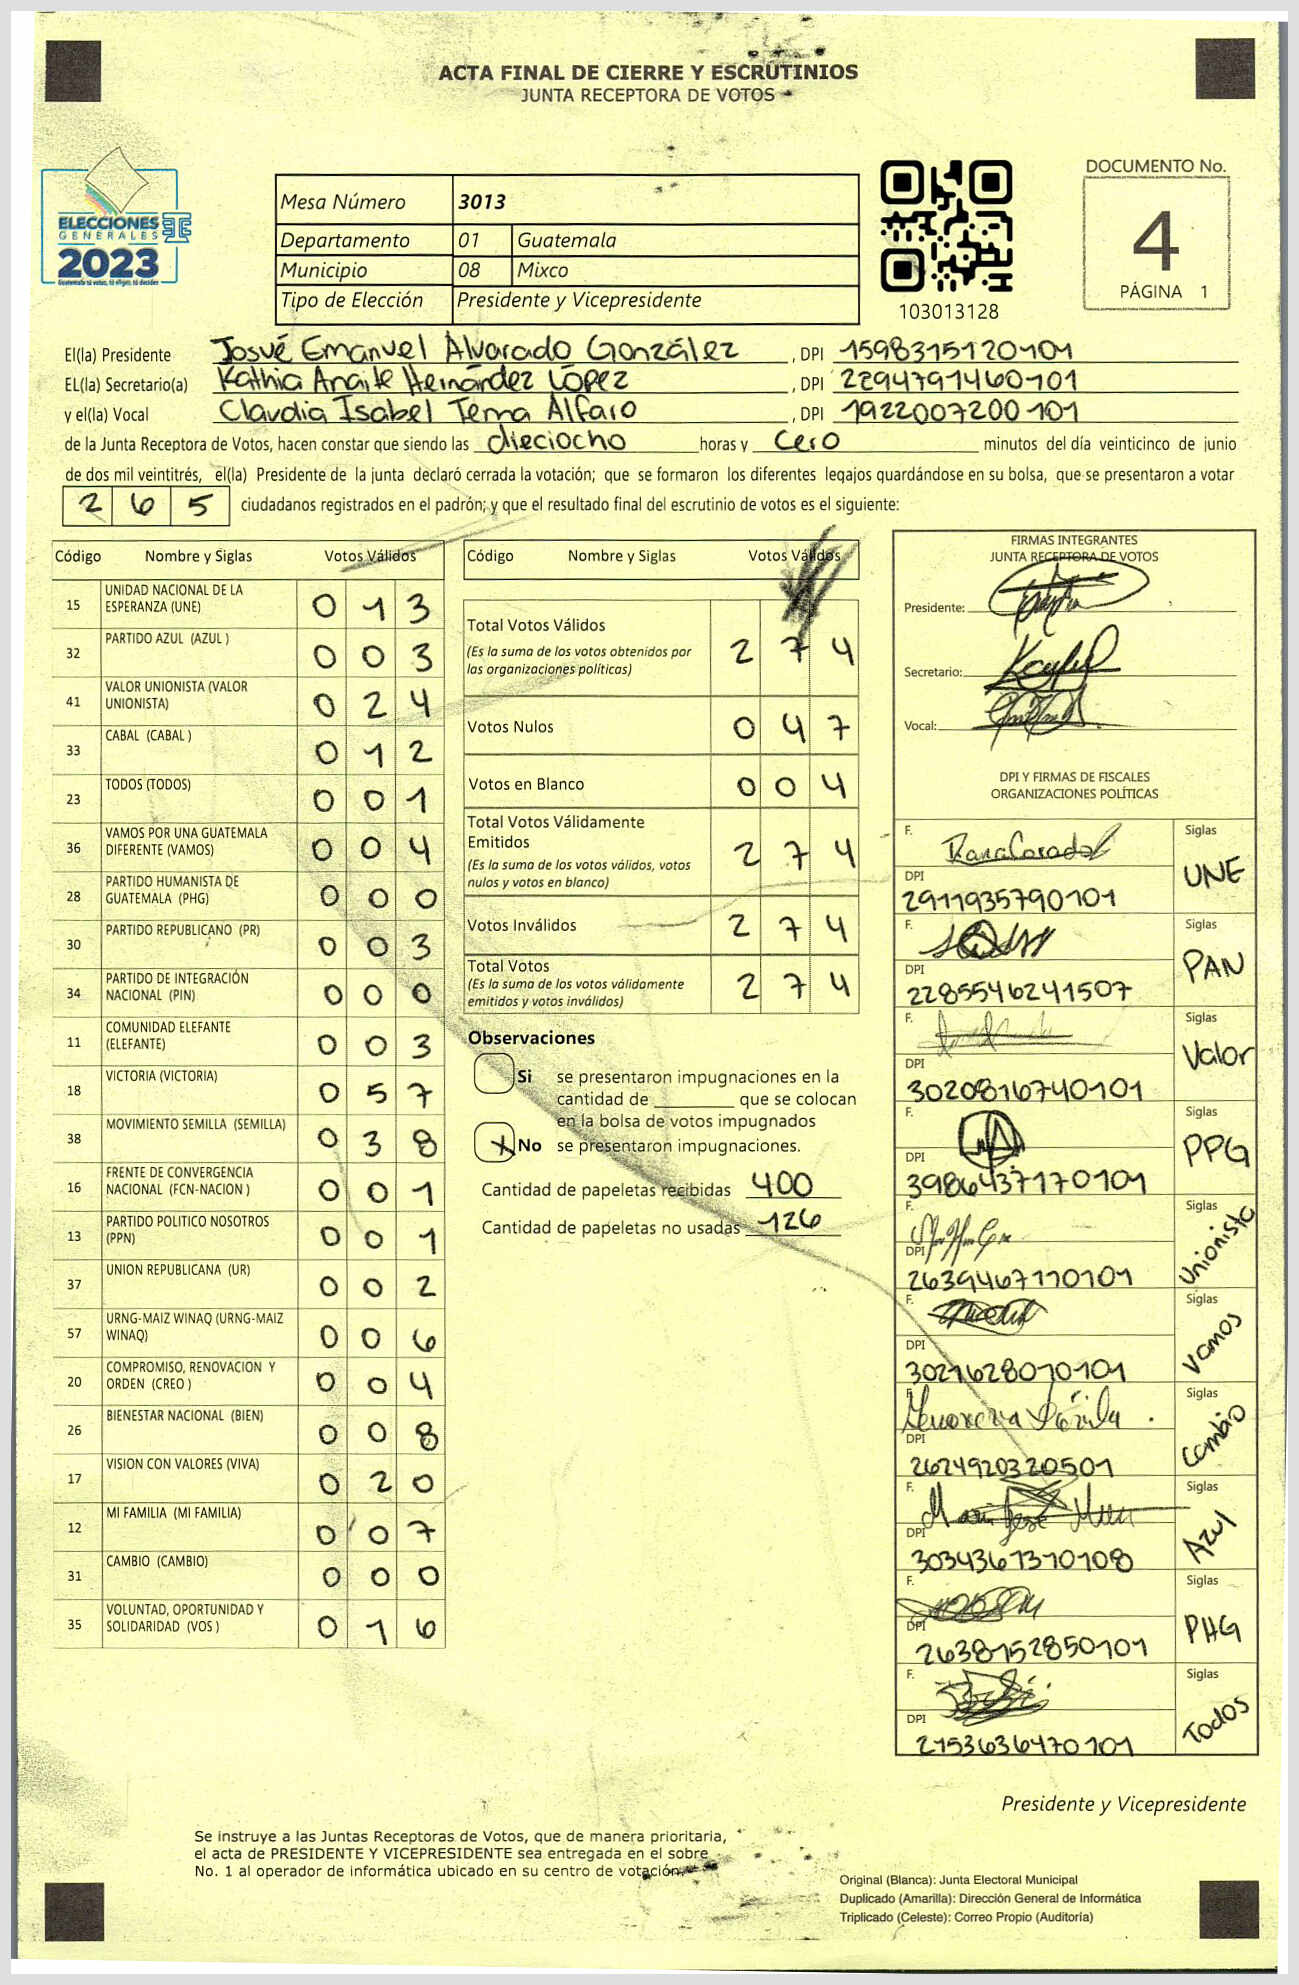 ACTA FINAL DE CIERRE Y ESCRUTINIOS
JUNTA RECEPTORA DE VOTOS
ELECCIONES
GENERALES
2023
Guatemala tú votas, tú eliges, tú decides
Mesa Número 3013
Departamento 01 Guatemala
Municipio 08 Mixco
Tipo de Elección Presidente y Vicepresidente
103013128
DOCUMENTO No.
4
PÁGINA 1
El(la) Presidente Josué Emanuel Alvarado González, DPI 1598315120101
EL(la) Secretario(a) Kathia Anaite Hernández López, DPI 2294791460101
y el(la) Vocal Claudia Isabel Tema Alfaro, DPI 1922007200101
de la Junta Receptora de Votos, hacen constar que siendo las dieciocho horas y cero minutos del día veinticinco de junio
de dos mil veintitrés, el(la) Presidente de la junta declaró cerrada la votación; que se formaron los diferentes legajos guardándose en su bolsa, que se presentaron a votar
265 ciudadanos registrados en el padrón; y que el resultado final del escrutinio de votos es el siguiente:
Código Nombre y Siglas Votos Válidos
15 UNIDAD NACIONAL DE LA
ESPERANZA (UNE) 0 1 3
32 PARTIDO AZUL (AZUL ) 0 0 3
41 VALOR UNIONISTA (VALOR
UNIONISTA) 0 2 4
33 CABAL (CABAL ) 0 1 2
23 TODOS (TODOS) 0 0 1
36 VAMOS POR UNA GUATEMALA
DIFERENTE (VAMOS) 0 0 4
28 PARTIDO HUMANISTA DE
GUATEMALA (PHG) 0 0 0
30 PARTIDO REPUBLICANO (PR) 0 0 3
34 PARTIDO DE INTEGRACIÓN
NACIONAL (PIN) 0 0 0
11 COMUNIDAD ELEFANTE
(ELEFANTE) 0 0 3
18 VICTORIA (VICTORIA) 0 5 7
38 MOVIMIENTO SEMILLA (SEMILLA) 0 3 8
16 FRENTE DE CONVERGENCIA
NACIONAL (FCN-NACION ) 0 0 1
13 PARTIDO POLITICO NOSOTROS
(PPN) 0 0 1
37 UNION REPUBLICANA (UR) 0 0 2
57 URNG-MAIZ WINAQ (URNG-MAIZ
WINAQ) 0 0 6
20 COMPROMISO, RENOVACION Y
ORDEN (CREO ) 0 0 4
26 BIENESTAR NACIONAL (BIEN) 0 0 8
17 VISION CON VALORES (VIVA) 0 2 0
12 MI FAMILIA (MI FAMILIA) 0 0 7
31 CAMBIO (CAMBIO) 0 0 0
35 VOLUNTAD, OPORTUNIDAD Y
SOLIDARIDAD (VOS ) 0 1 6
Código Nombre y Siglas Votos Válidos
Total Votos Válidos 2 7 4
(Es la suma de los votos obtenidos por
las organizaciones políticas)
Votos Nulos 0 4 7
Votos en Blanco 0 0 4
Total Votos Válidamente
Emitidos 2 7 4
(Es la suma de los votos válidos, votos
nulos y votos en blanco)
Votos Inválidos 2 7 4
Total Votos 2 7 4
(Es la suma de los votos válidamente
emitidos y votos inválidos)
Observaciones
Si se presentaron impugnaciones en la
cantidad de ________ que se colocan
en la bolsa de votos impugnados
X No se presentaron impugnaciones.
Cantidad de papeletas recibidas 400
Cantidad de papeletas no usadas 126
FIRMAS INTEGRANTES
JUNTA RECEPTORA DE VOTOS
Presidente:
Secretario:
Vocal:
DPI Y FIRMAS DE FISCALES
ORGANIZACIONES POLÍTICAS
F. Siglas
DPI UNE
2911935790101
F. Siglas
DPI PAN
2285546241507
F. Siglas
DPI Valor
3020816740101
F. Siglas
DPI PPG
3986437170101
F. Siglas
DPI Unionista
2639467110101
F. Siglas
DPI Vamos
3021628010101
F. Siglas
DPI Cambio
2624920320501
F. Siglas
DPI Azul
3034361310108
F. Siglas
DPI PHG
2638152850101
F. Siglas
DPI Todos
2153636470101
Presidente y Vicepresidente
Se instruye a las Juntas Receptoras de Votos, que de manera prioritaria,
el acta de PRESIDENTE Y VICEPRESIDENTE sea entregada en el sobre
No. 1 al operador de informática ubicado en su centro de votación.
Original (Blanca): Junta Electoral Municipal
Duplicado (Amarilla): Dirección General de Informática
Triplicado (Celeste): Correo Propio (Auditoría)